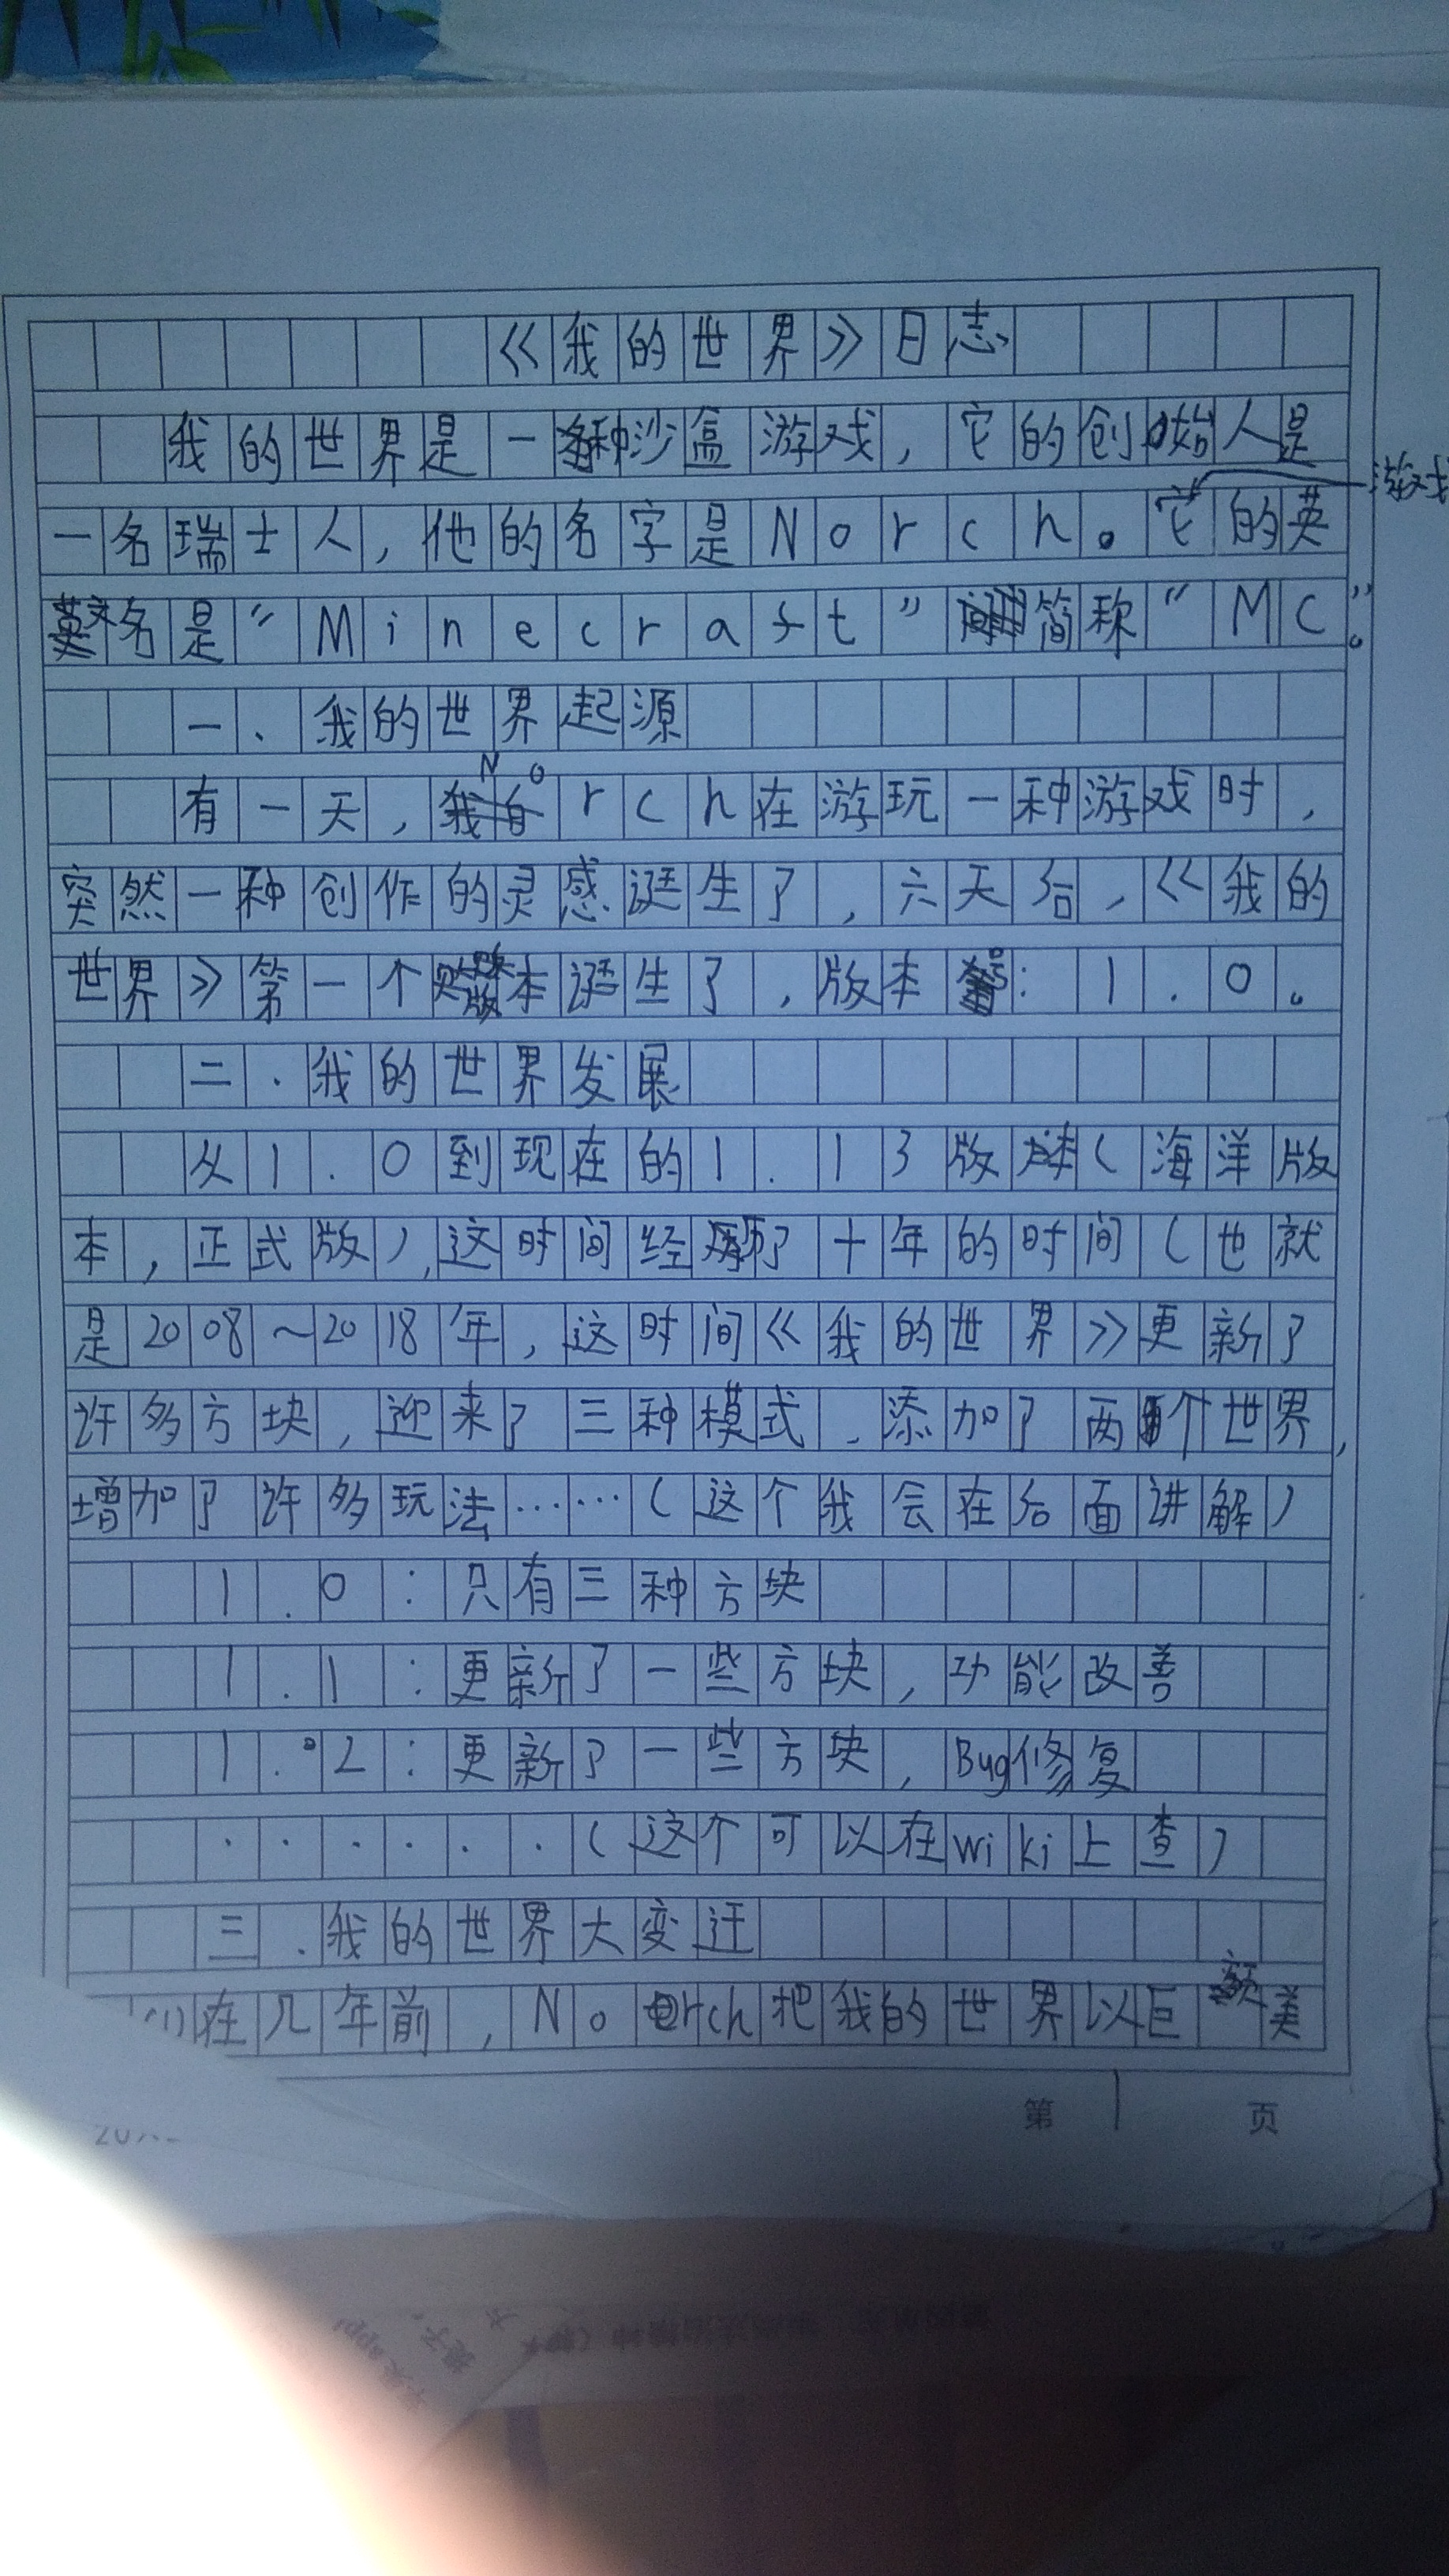 《我的世界》日志
我的世界是一种沙盒游戏，它的创始人是
一名瑞士人，他的名字是Norch。它的英
游戏
文名是“Minecraft”简称“MC”。
一、我的世界起源
有一天，Norch在游玩一种游戏时，
突然一种创作的灵感诞生了，六天后，《我的
世界》第一个版本诞生了，版本号：1.0。
二.我的世界发展
从1.0到现在的1.13版本（海洋版
本，正式版），这时间经历了十年的时间（也就
是2008~2018年，这时间《我的世界》更新了
许多方块，迎来了三种模式，添加了两个世界，
增加了许多玩法……（这个我会在后面讲解）
1.0：只有三种方块
1.1：更新了一些方块，功能改善
1.2：更新了一些方块，Bug修复
......（这个可以在wiki上查）
三.我的世界大变迁
(1)在几年前，Norch把我的世界以巨额美
第1页